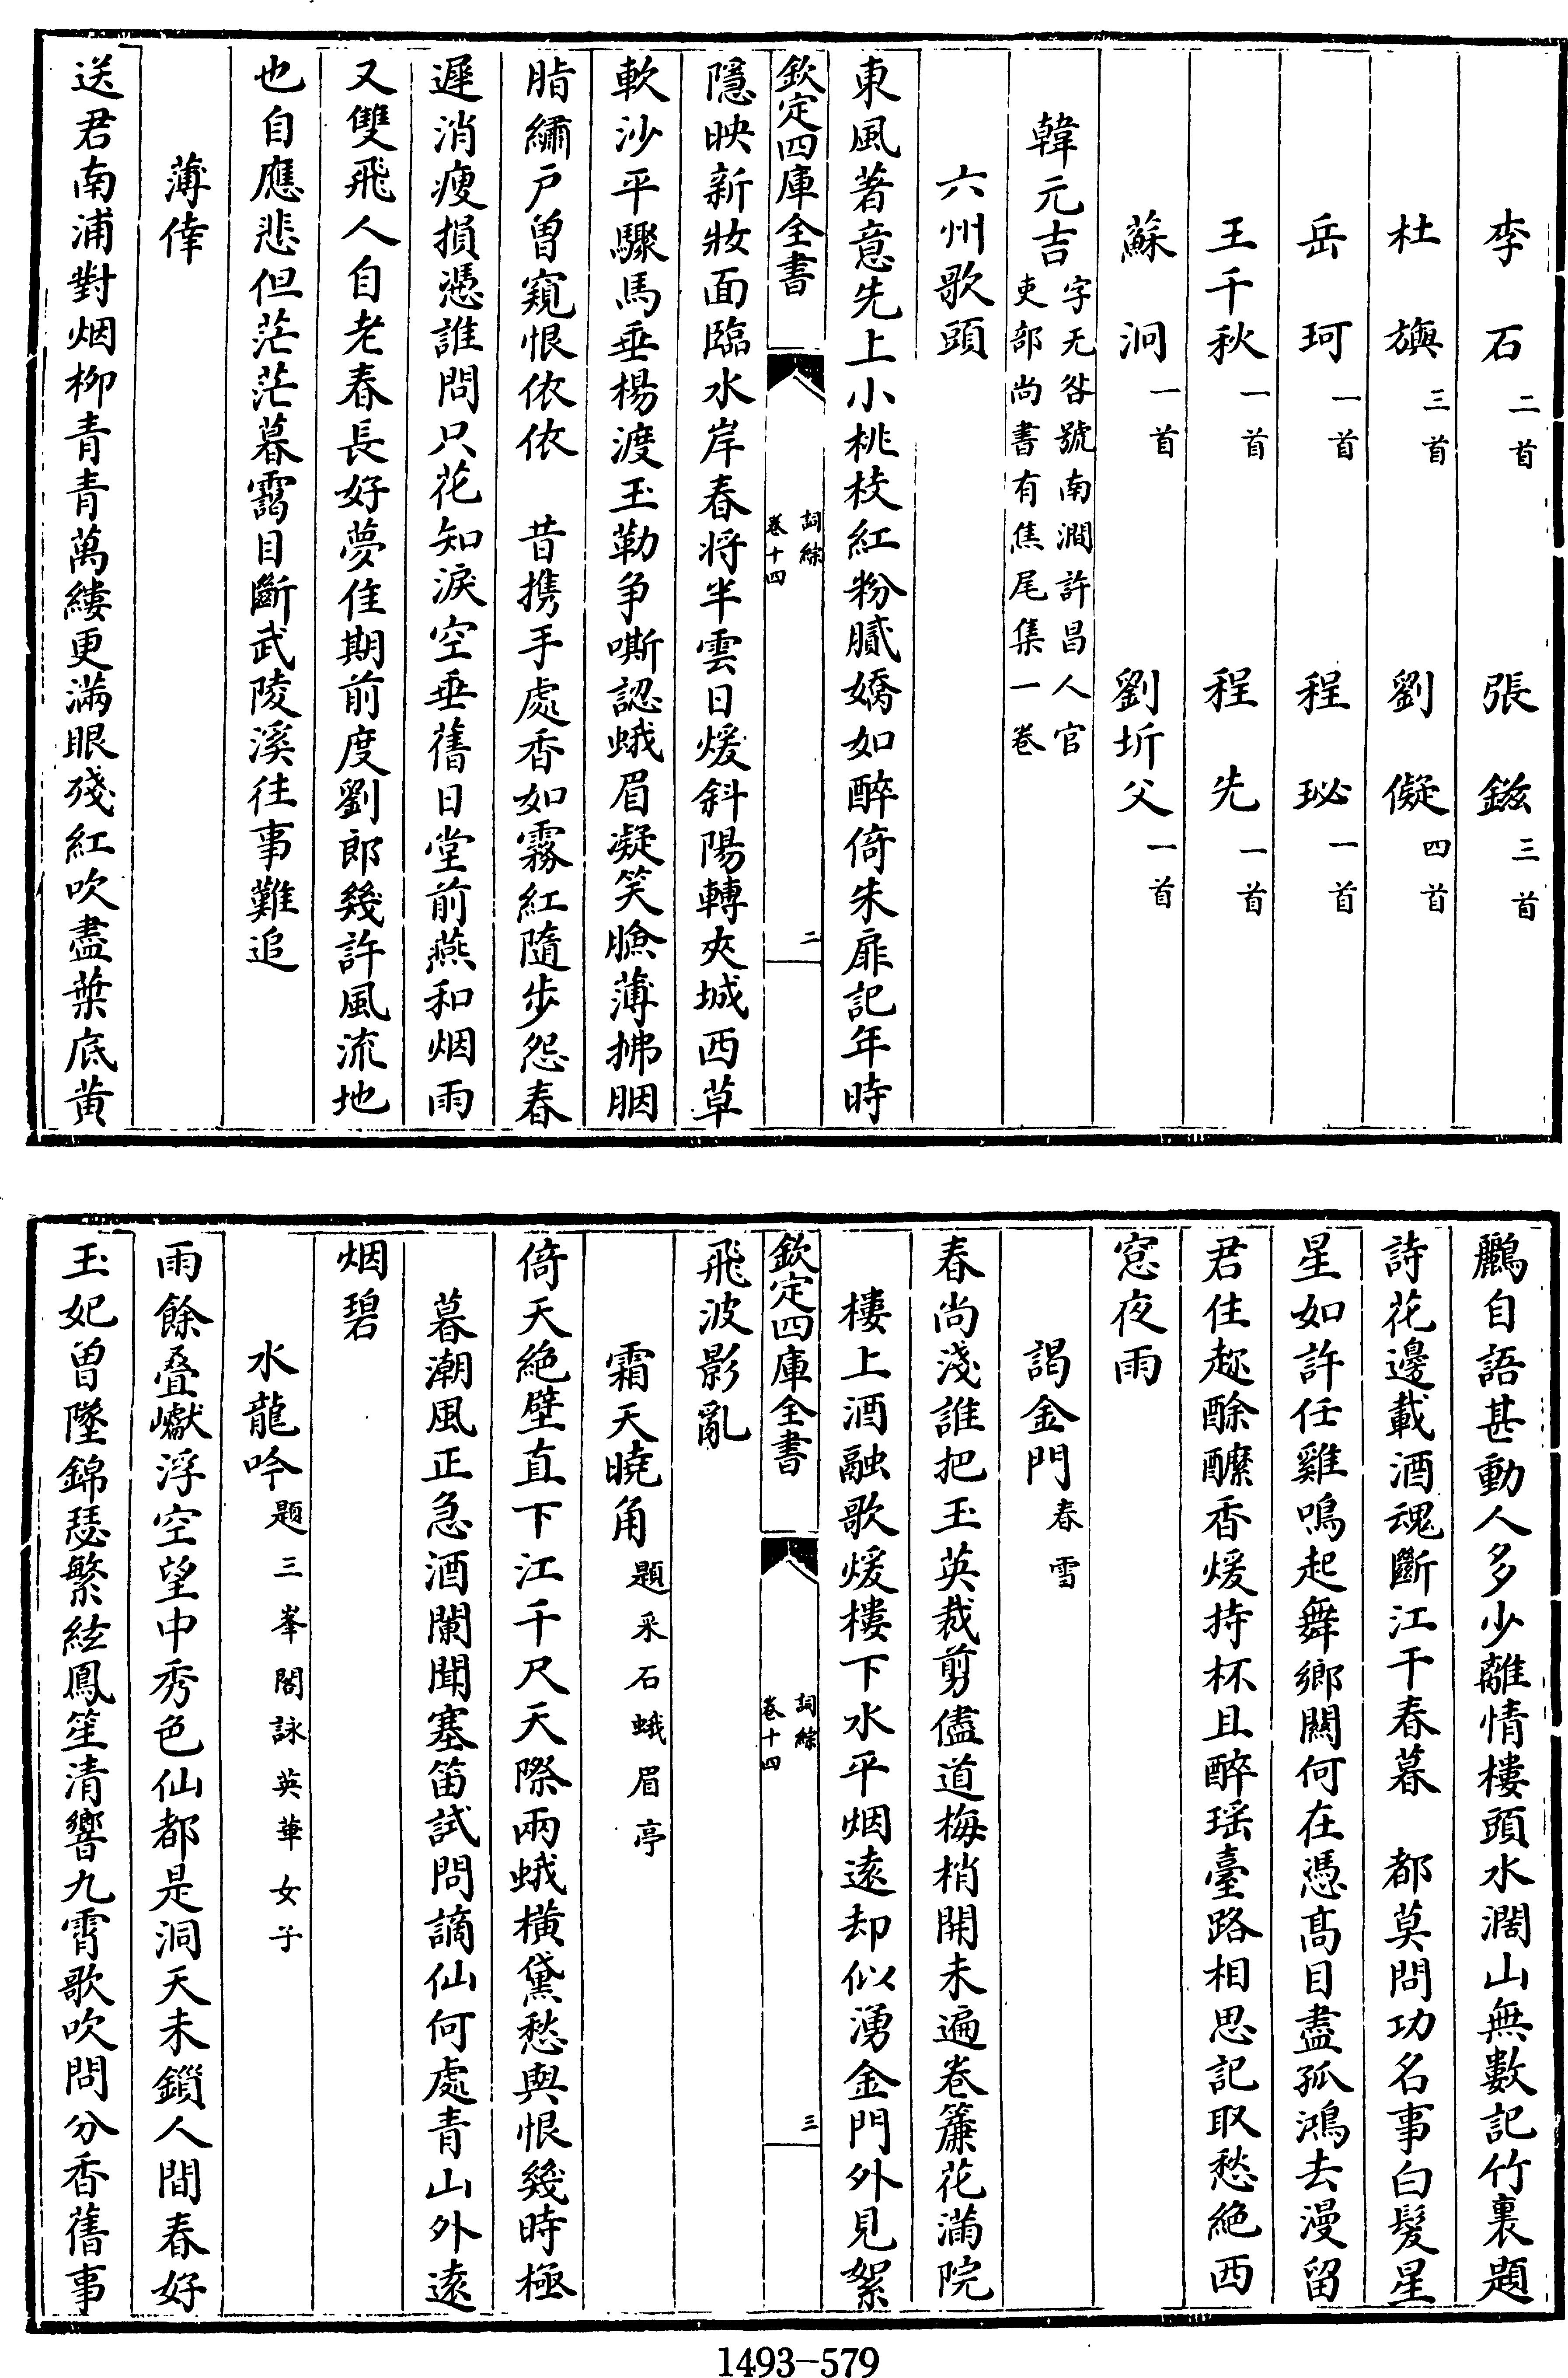 李石二首　張鎡三首
杜旟三首　劉儗四首
岳珂一首　程珌一首
王千秋一首　程先一首
蘇泂一首　劉圻父一首
韓元吉字无咎號南澗許昌人官
吏部尚書有焦尾集一卷
六州歌頭
東風著意先上小桃枝紅粉膩嬌如醉倚朱扉記年時
欽定四庫全書
詞綜
卷十四
二
隱映新妝面臨水岸春將半雲日煖斜陽轉夾城西草
軟沙平驟馬垂楊渡玉勒爭嘶認蛾眉凝笑臉薄拂胭
脂繡戶曾窺恨依依　昔携手處香如霧紅隨步怨春
遲消瘦損憑誰問只花知淚空垂舊日堂前燕和烟雨
又雙飛人自老春長好夢佳期前度劉郎幾許風流地
也自應悲但茫茫暮靄目斷武陵溪往事難追
薄倖
送君南浦對烟柳青青萬縷更滿眼殘紅吹盡葉底黃
鸝自語甚動人多少離情樓頭水濶山無數記竹裏題
詩花邊載酒魂斷江干春暮　都莫問功名事白髮星
星如許任雞鳴起舞鄉關何在憑髙目盡孤鴻去漫留
君住趂酴醿香煖持杯且醉瑶臺路相思記取愁絶西
窓夜雨
謁金門春雪
春尚淺誰把玉英裁剪儘道梅梢開未遍卷簾花滿院
樓上酒融歌煖樓下水平烟遠却似湧金門外見絮
欽定四庫全書
詞綜
卷十四
三
飛波影亂
霜天曉角題采石蛾眉亭
倚天絶壁直下江千尺天際兩蛾橫黛愁與恨幾時極
暮潮風正急酒闌聞塞笛試問謫仙何處青山外遠
烟碧
水龍吟題三峯閣詠英華女子
雨餘叠巘浮空望中秀色仙都是洞天未鎖人間春好
玉妃曽墜錦瑟繁絃鳳笙清響九霄歌吹問分香舊事
1493-579